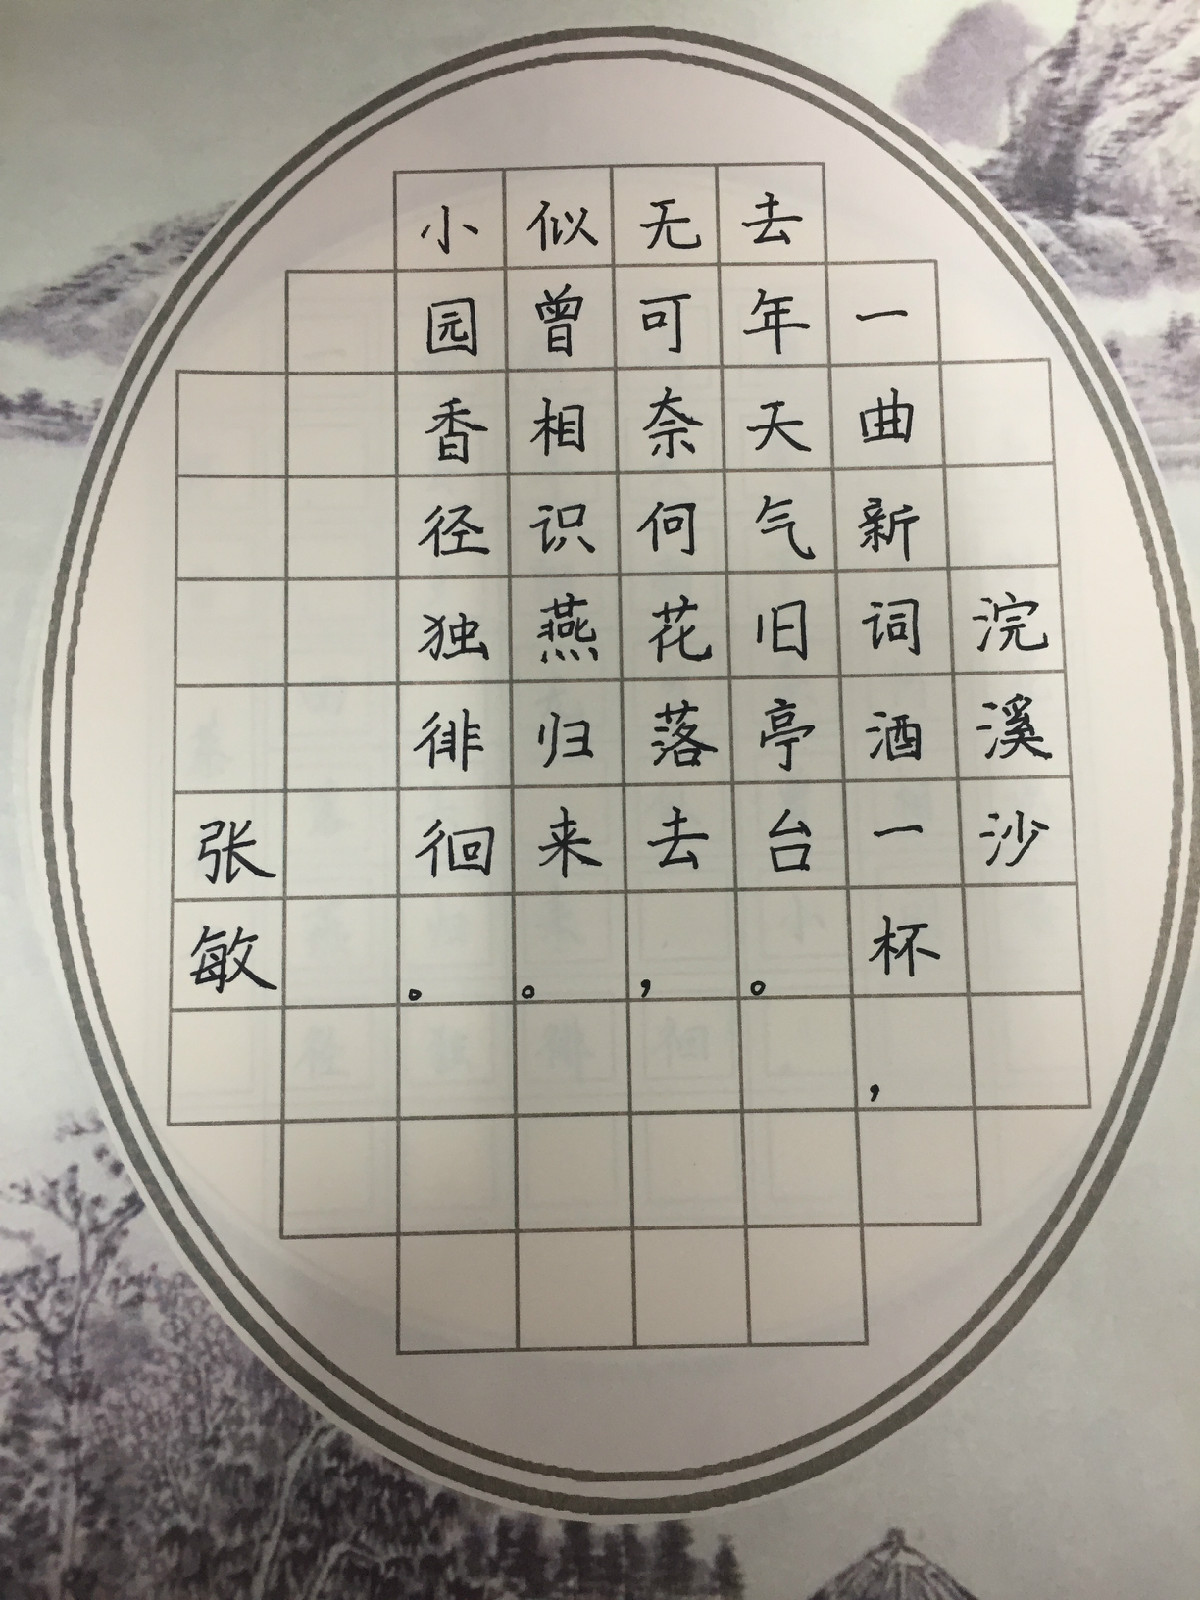 浣溪沙
一曲新词酒一杯，
去年天气旧亭台。
无可奈何花落去，
似曾相识燕归来。
小园香径独徘徊。
张敏